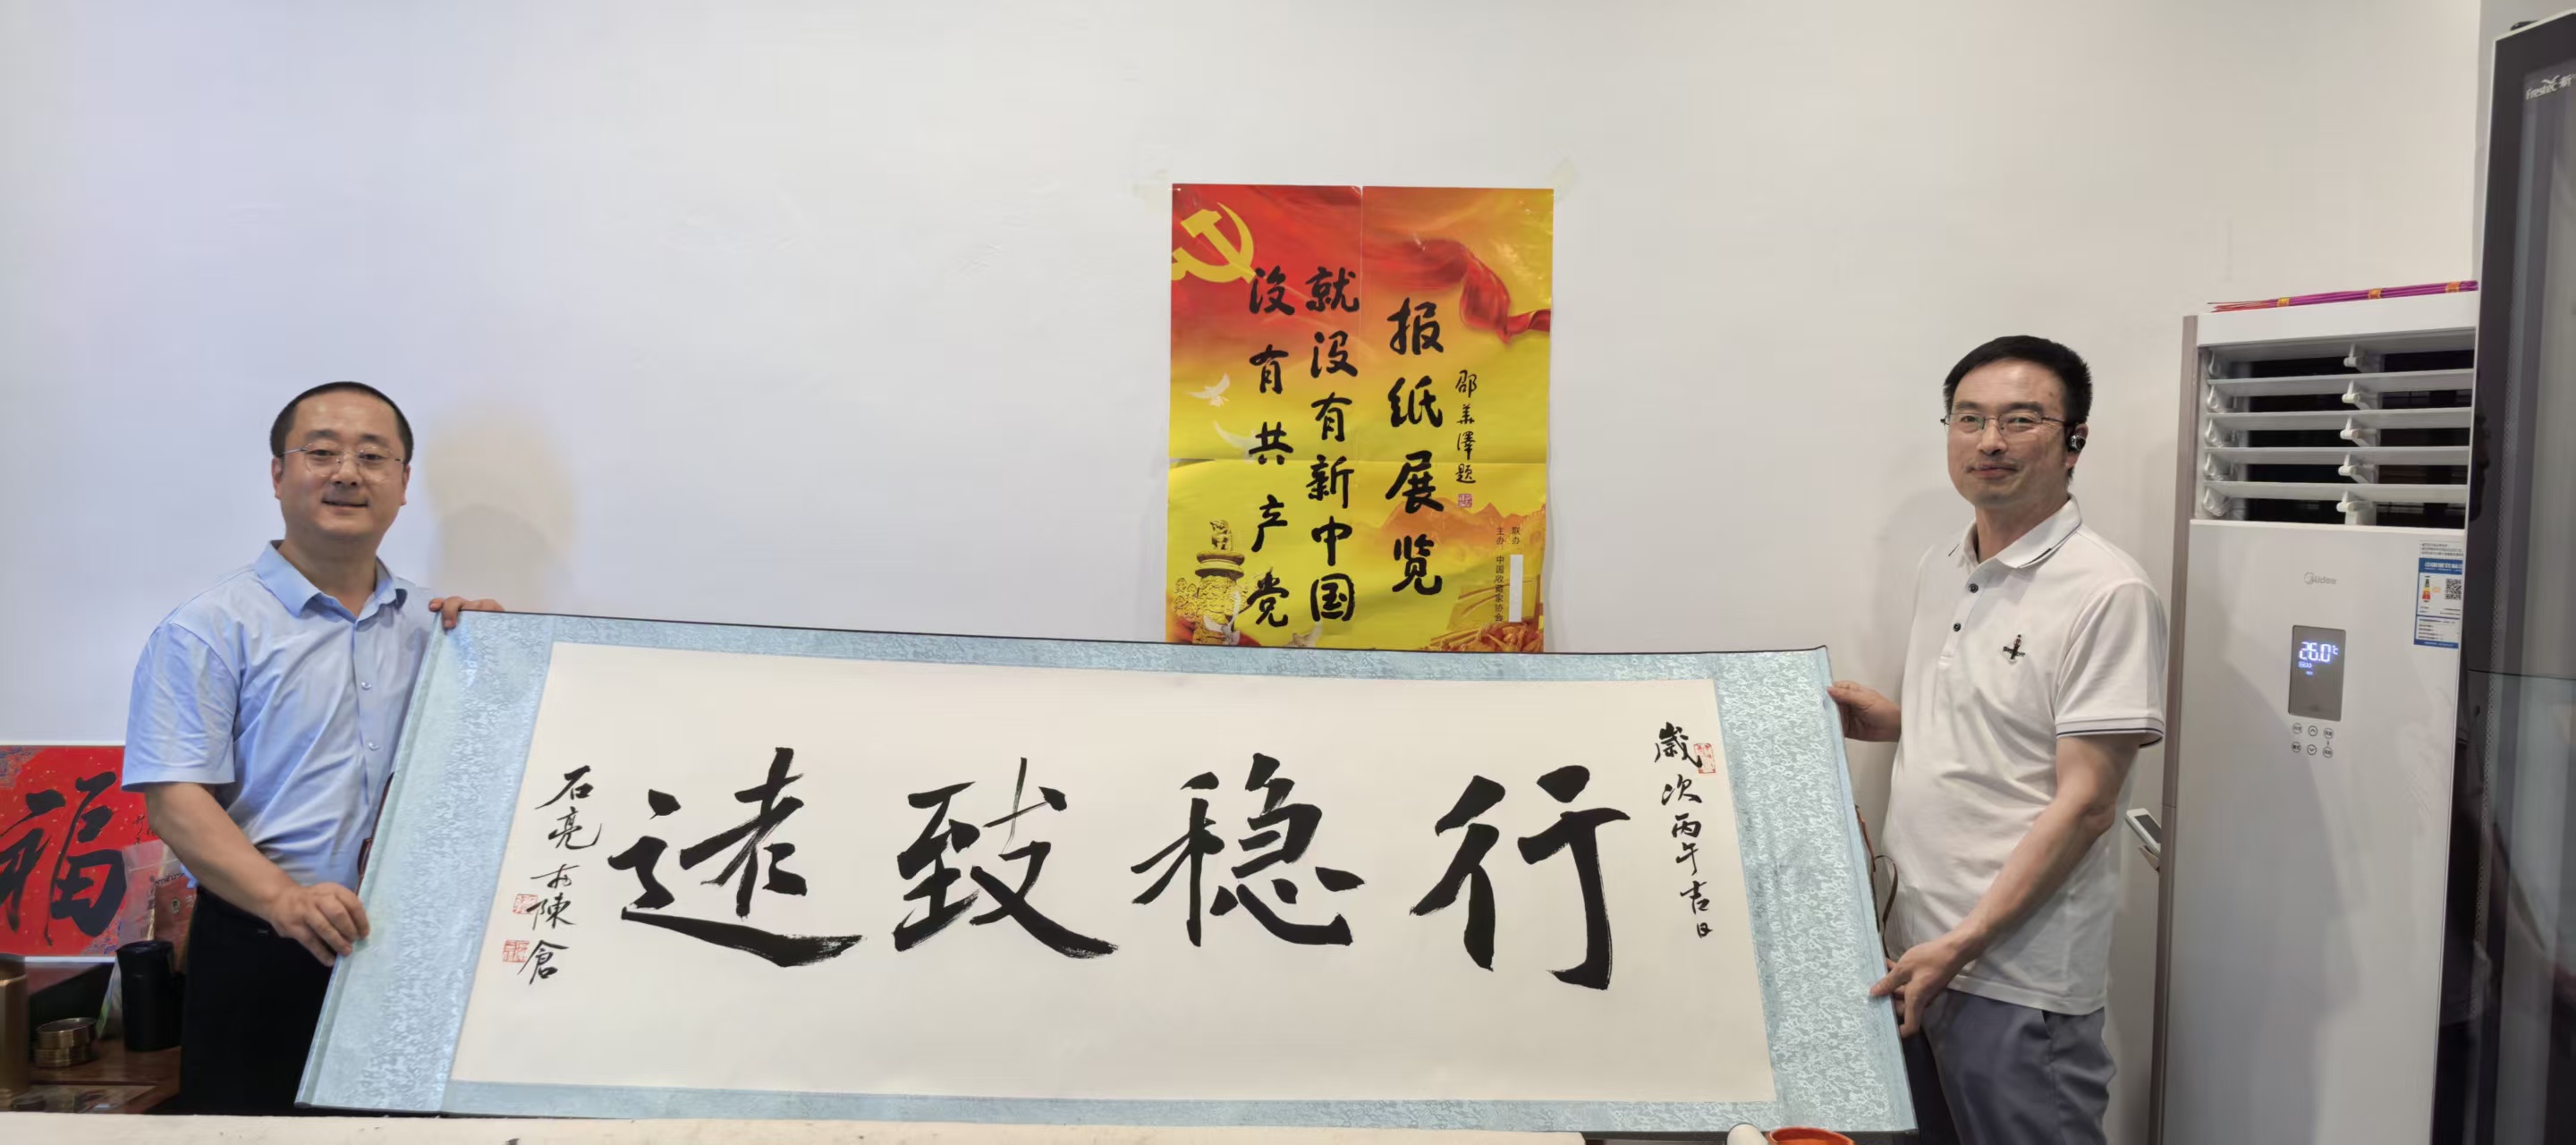 没有共产党
就没有新中国
报纸展览
邵华泽题
联办
主办 中国收藏家协会
歲次丙午吉日
行稳致远
石亮於陳倉
福
Midea
26.0℃
Frestec